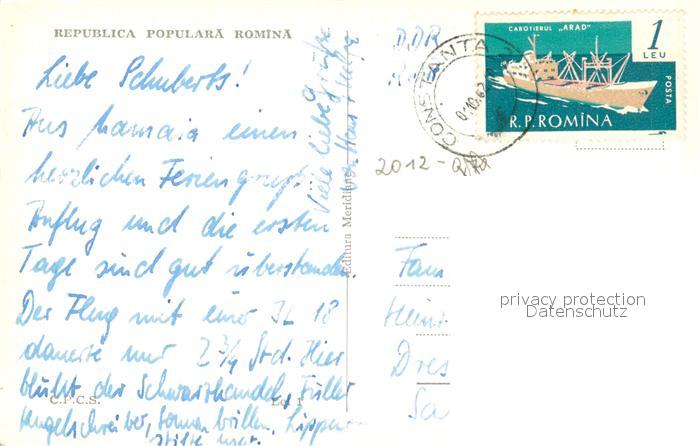 REPUBLICA POPULARĂ ROMÎNĂ
Liebe Schuberts!
Aus Mamaia einen
herzlichen Feriengruß.
Anflug und die ersten
Tage sind gut überstanden.
Der Flug mit einer IL 18
dauerte nur 2 3/4 Std. Hier
blüht der Schwarzhandel, Füller
Kugelschreiber, Sonnenbrillen, Lippen-
stifte usw.
Viele liebe Grüße
C.P.C.S.
Ed. 1
Editura Meridiane
DDR
CABOTIERUL „ARAD"
1
LEU
POSTA
R.P.ROMINA
CONSTANTA
2012 -
Fam
Hein
Dres
Sa
privacy protection
Datenschutz